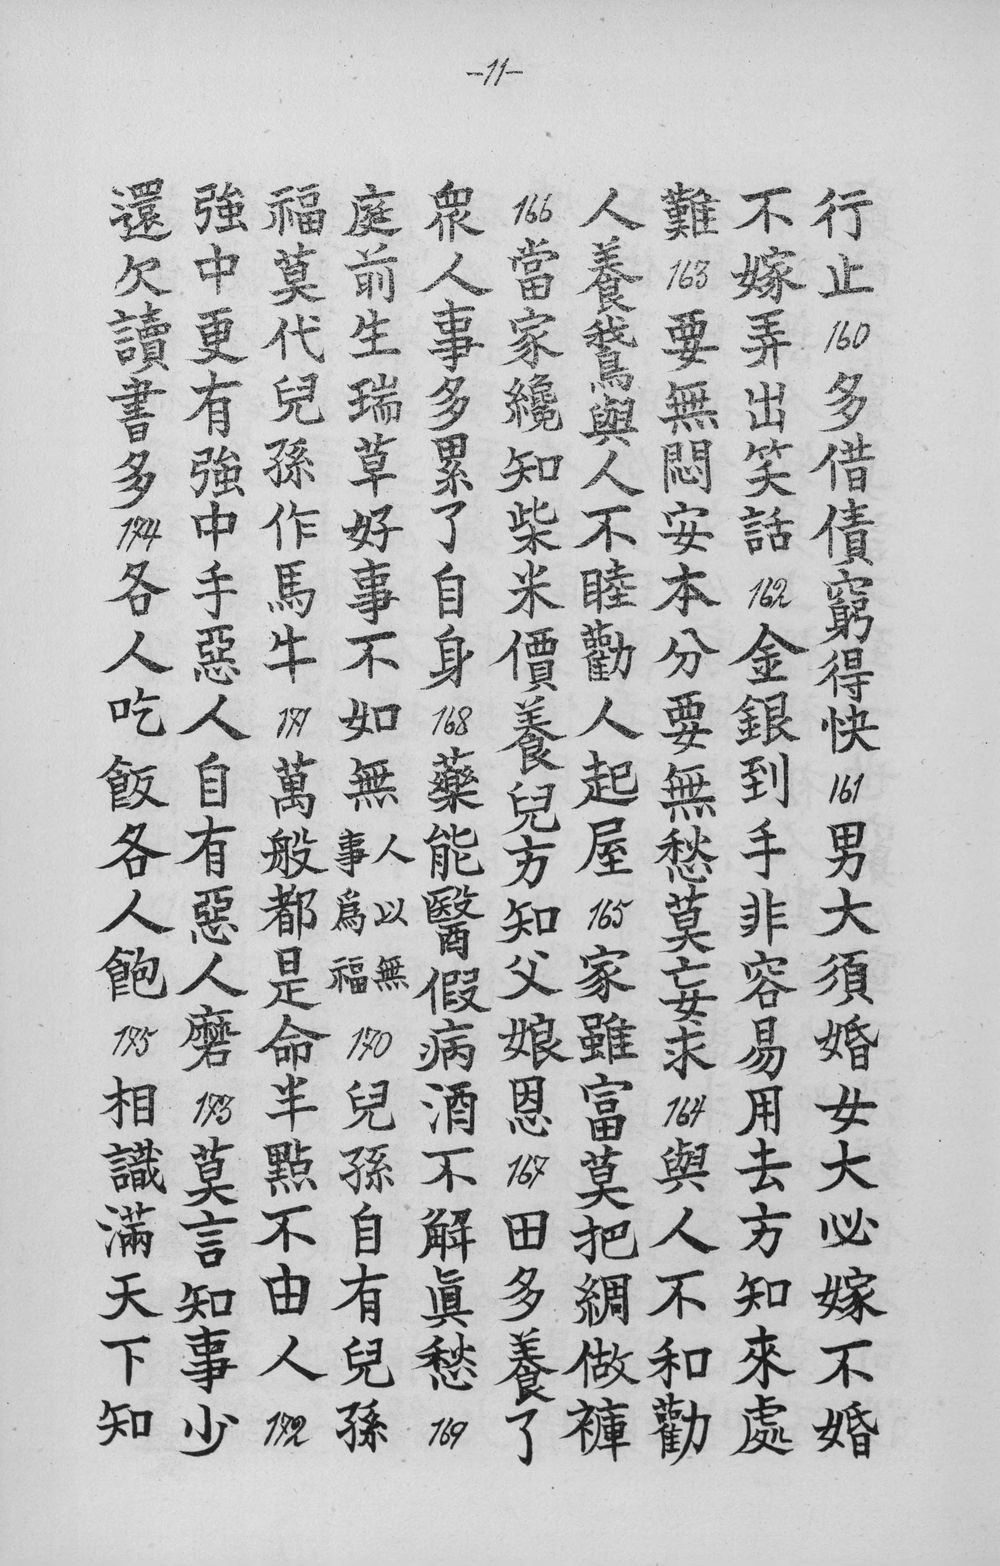 -11-
行止160多借債窮得快161男大須婚女大必嫁不婚
不嫁弄出笑話162金銀到手非容易用去方知來處
難163要無悶安本分要無愁莫妄求164與人不和勸
人養鵞與人不睦勸人起屋165家雖富莫把綢做褲
166當家纔知柴米價養兒方知父娘恩167田多養了
眾人事多累了自身168藥能醫假病酒不解眞愁169
庭前生瑞草好事不如無人以無事爲福170兒孫自有兒孫
福莫代兒孫作馬牛171萬般都是命半點不由人172
強中更有強中手惡人自有惡人磨173莫言知事少
還欠讀書多174各人吃飯各人飽175相識滿天下知